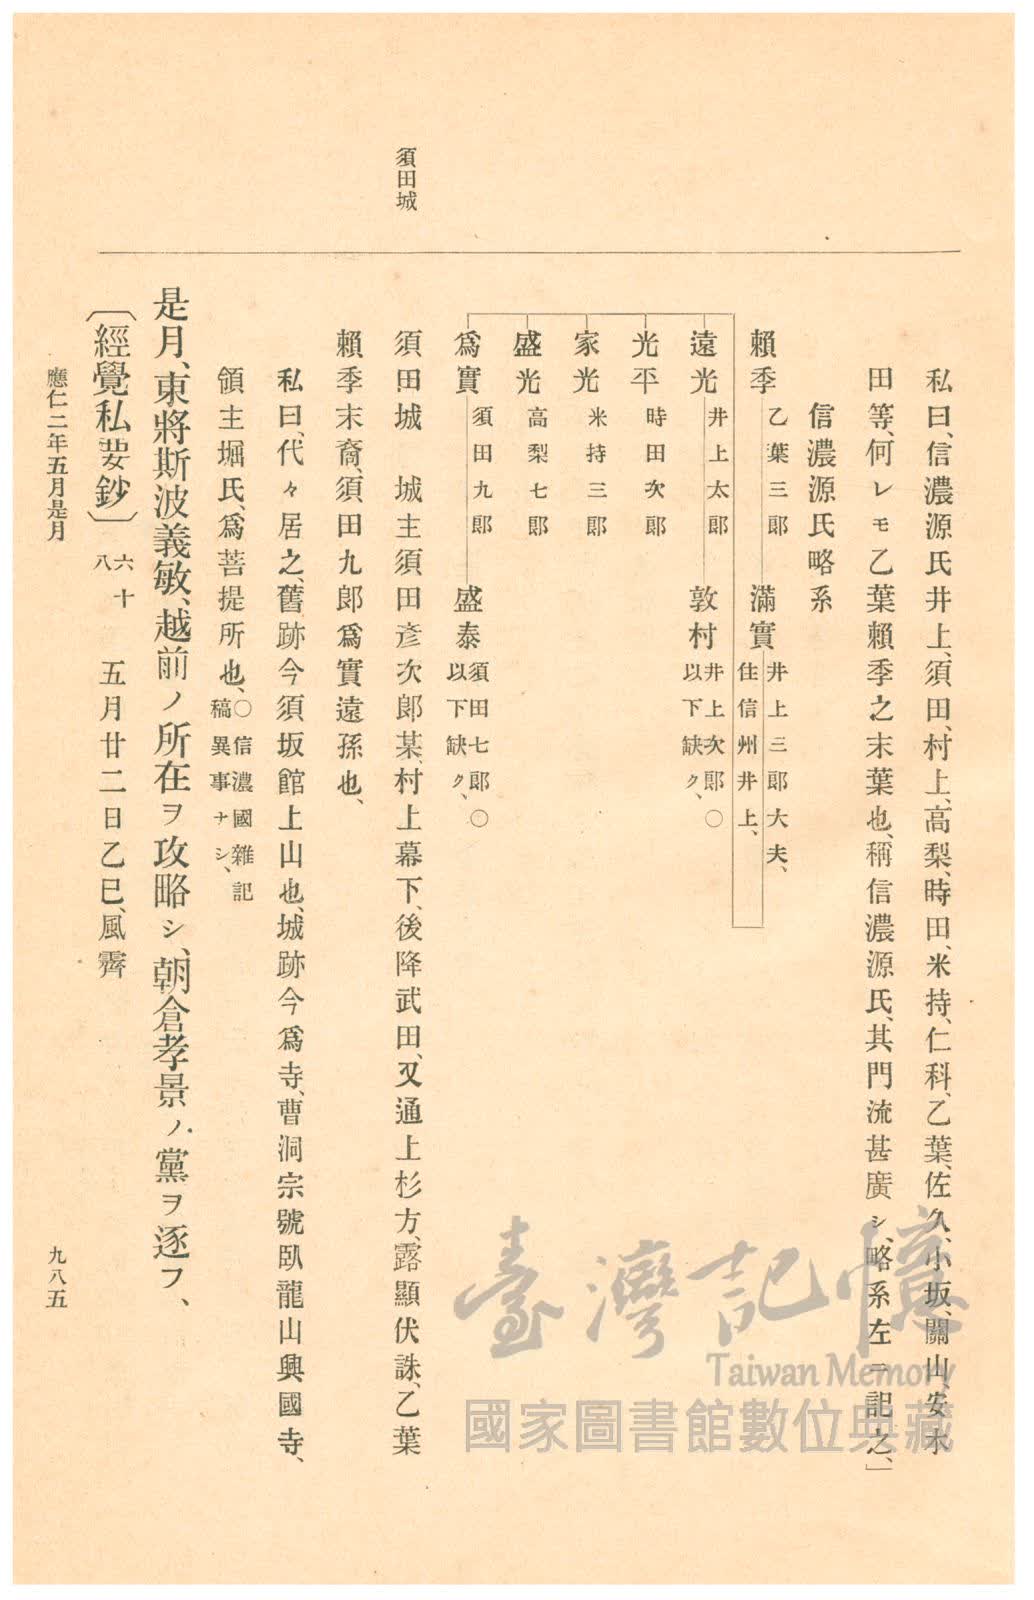 須田城
私曰、信濃源氏井上、須田、村上、高梨、時田、米持、仁科、乙葉、佐久、小坂、關山、安木
田等、何レモ乙葉賴季之末葉也、稱信濃源氏、其門流甚廣シ、略系左ニ記之、」
信濃源氏略系
賴季 乙葉三郞 滿實 井上三郞大夫、住信州井上、
遠光 井上太郞 敦村 井上次郞○以下缺ク、
光平 時田次郞
家光 米持三郞
盛光 高梨七郞
爲實 須田九郞 盛泰 須田七郞○以下缺ク、
須田城 城主須田彥次郞某、村上幕下、後降武田、又通上杉方、露顯伏誅、乙葉
賴季末裔、須田九郞爲實遠孫也、
私曰、代々居之、舊跡今須坂館上山也、城跡今爲寺、曹洞宗號臥龍山興國寺、
領主堀氏、爲菩提所也、○信濃國雜記稿異事ナシ、
是月、東將斯波義敏、越前ノ所在ヲ攻略シ、朝倉孝景ノ黨ヲ逐フ、
〔經覺私要鈔〕 六十八 五月廿二日乙巳、風霽
應仁二年五月是月
九八五
臺灣記憶
Taiwan Memory
國家圖書館數位典藏